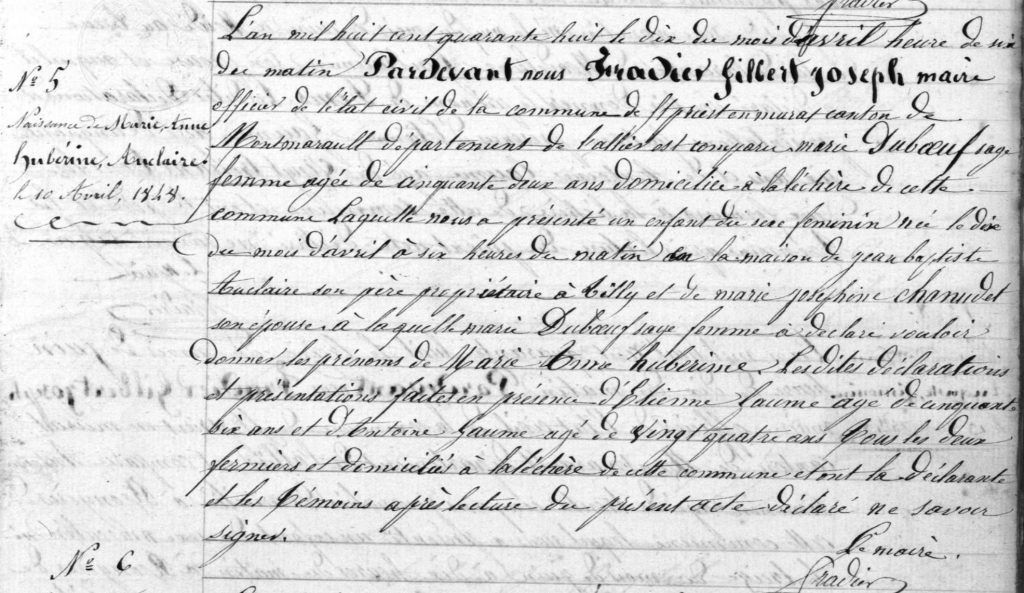 fradier
L'an mil huit cent quarante huit le dix du mois d'avril heure de six
du matin Pardevant nous Fradier Gilbert Joseph maire
officier de l'état civil de la commune de st priest en murat canton de
Montmarault département de l'allier est comparu marie Dubœuf sage
femme agée de cinquante deux ans domiciliée à la léchère de cette
commune Laquelle nous a présenté un enfant du sexe feminin née le dix
du mois d'avril à six heures du matin en la maison de jean baptiste
Auclaire son père propriétaire à Tilly et de marie josephine chanudet
son épouse. à laquelle marie Dubœuf sage femme a déclaré vouloir
donner les prénoms de Marie Anne huberine. Les dites déclarations
et présentations faites en présence d'Etienne jaume agé de cinquante
six ans et d'Antoine jaume agé de vingt quatre ans tous les deux
fermiers et domiciliés à la léchère de cette commune et ont la déclarante
et les témoins après lecture du present acte déclaré ne savoir
signer.
Le maire.
fradier
N° 5
Naissance de Marie, Anne
hubérine, Auclaire.
le 10 Avril, 1848.
N° 6